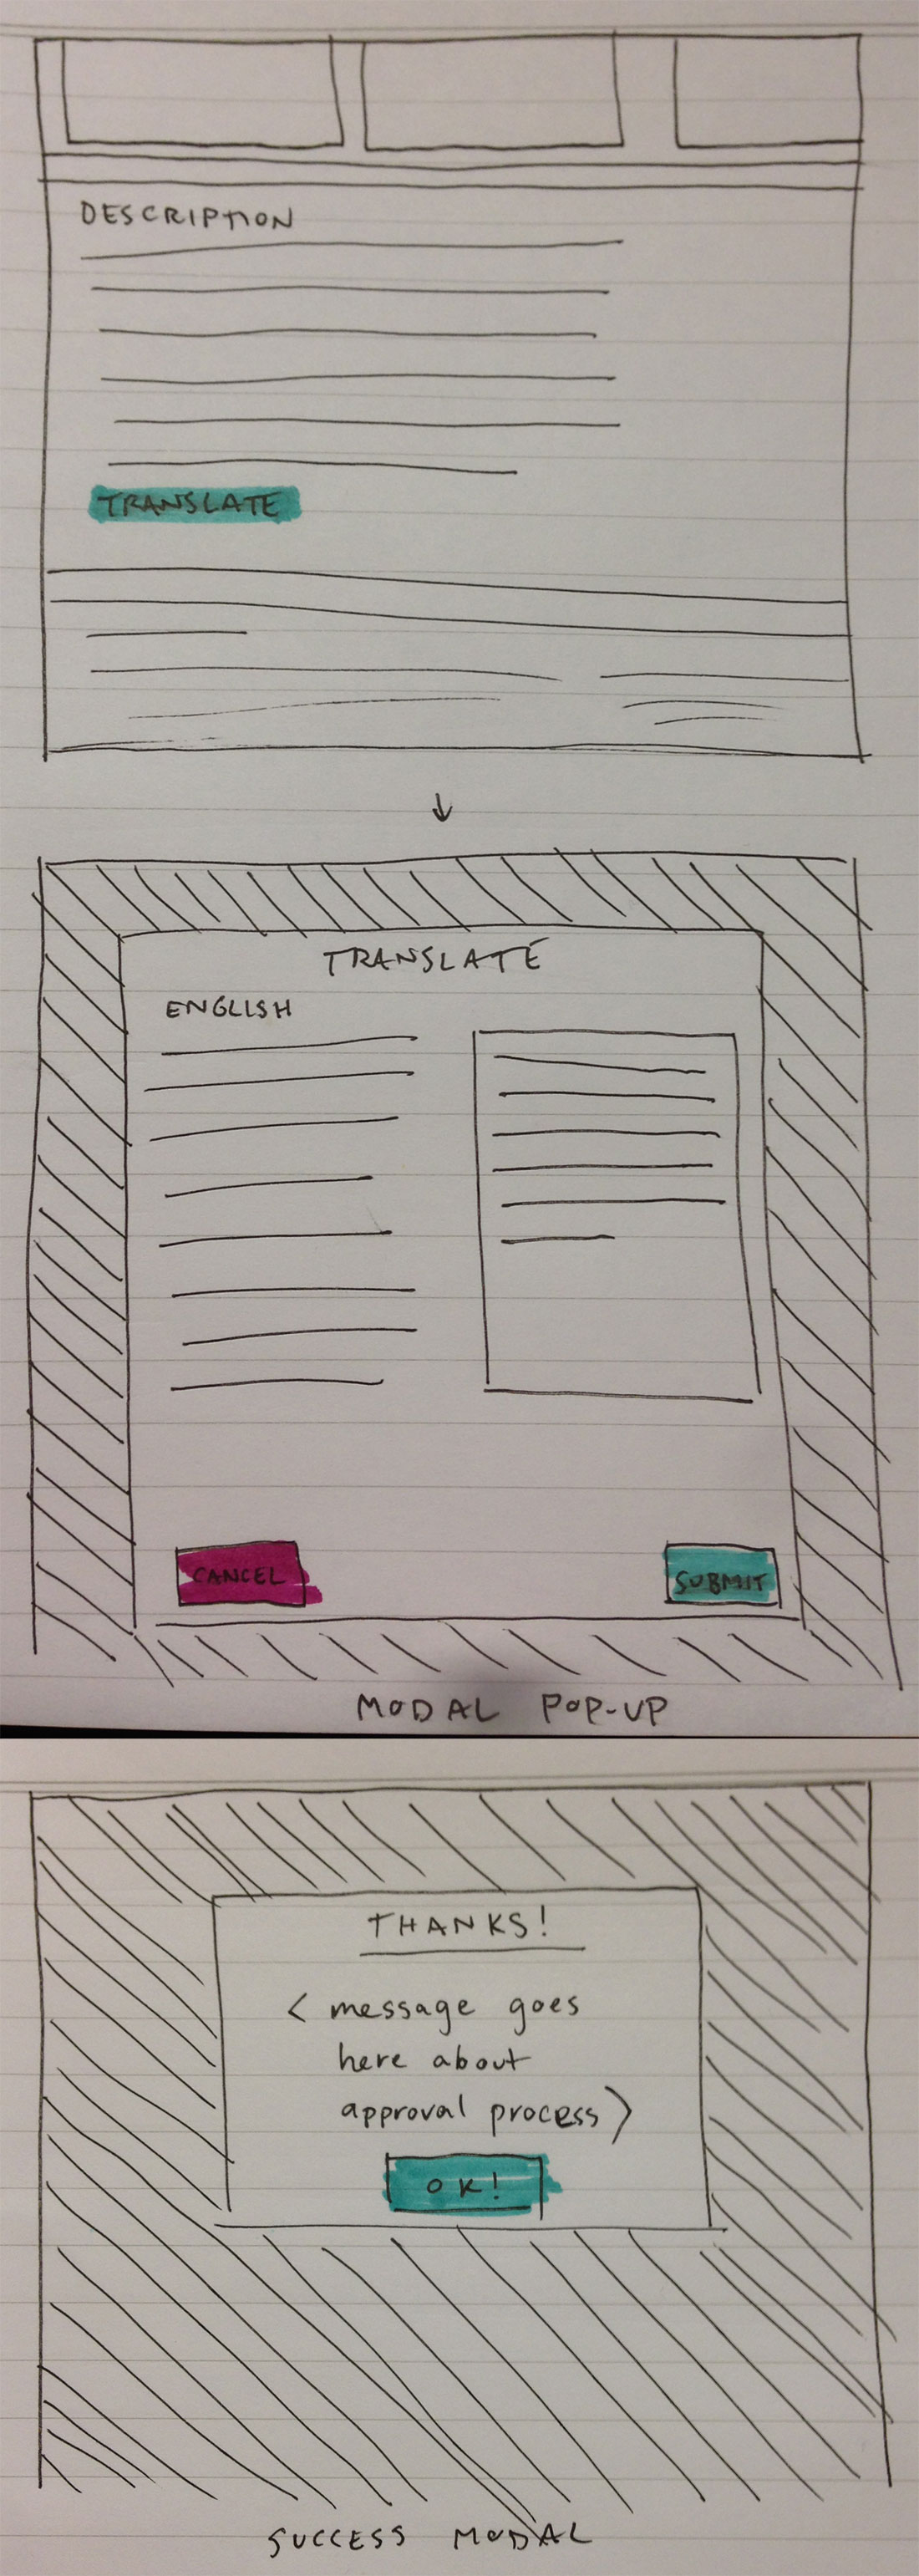 DESCRIPTION
TRANSLATE
TRANSLATE
ENGLISH
CANCEL
SUBMIT
MODAL POP-UP
THANKS!
< message goes
here about
approval process>
OK!
SUCCESS MODAL